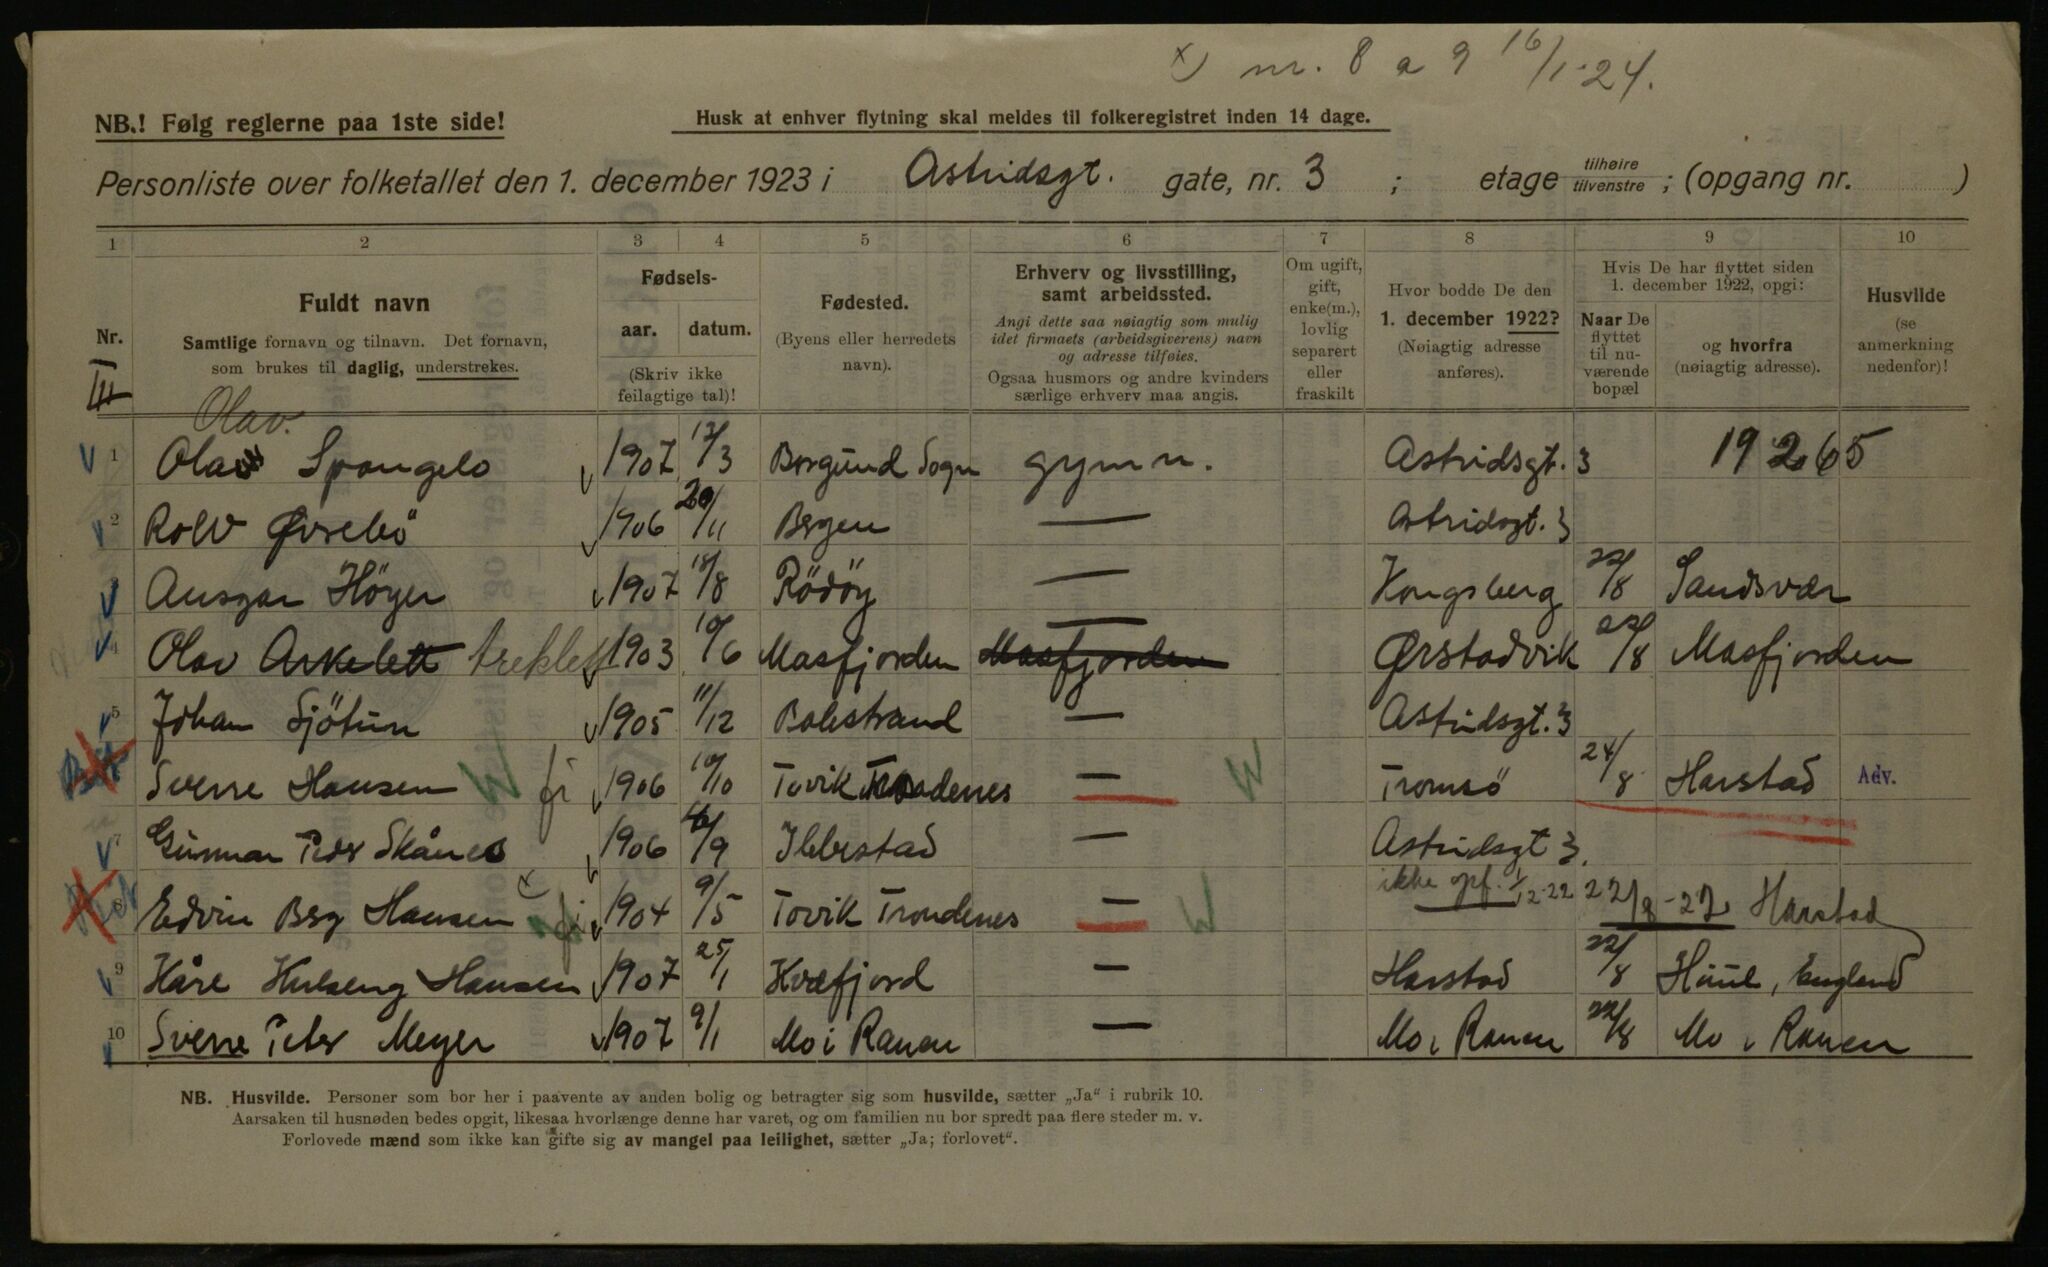 x) nr. 8 a 9 16/1-24.
NB.! Følg reglerne paa 1ste side!
Husk at enhver flytning skal meldes til folkeregistret inden 14 dage.
Personliste over folketallet den 1. december 1923 i Astridsgt. gate, nr. 3 ; etage tilhøire tilvenstre ; (opgang nr. )
1 2 3 4 5 6 7 8 9 10
Nr. III
Fuldt navn
Samtlige fornavn og tilnavn. Det fornavn, som brukes til daglig, understrekes.
Fødsels-
aar. datum.
(Skriv ikke feilagtige tal)!
Fødested.
(Byens eller herredets navn).
Erhverv og livsstilling, samt arbeidssted.
Angi dette saa nøiagtig som mulig idet firmaets (arbeidsgiverens) navn og adresse tilføies.
Ogsaa husmors og andre kvinders særlige erhverv maa angis.
Om ugift, gift, enke(m.), lovlig separert eller fraskilt
Hvor bodde De den 1. december 1922?
(Nøiagtig adresse anføres).
Hvis De har flyttet siden 1. december 1922, opgi:
Naar De flyttet til nuværende bopæl
og hvorfra (nøiagtig adresse).
Husvilde
(se anmerkning nedenfor)!
Olav.
1 Olav Spangelo 1907 12/3 Borgund Sogn gymn. Astridsgt. 3 19265
2 Rolv Øvrebö 1906 20/11 Bergen — Astridsgt. 3
3 Ansgar Höyer 1907 18/8 Rödöy — Kongsberg 22/8 Sandsvær
4 Olav Arkelett Areklett 1903 10/6 Masfjorden Masfjorden — Ørstadvik 22/8 Masfjorden
5 Johan Sjötun 1905 11/12 Balestrand — Astridsgt. 3
Sverre Hansen fi 1906 10/10 Tovik Trondenes — Tromsö 24/8 Harstad Adv.
7 Gunnar Peder Skånes 1906 16/9 Ibbestad — Astridsgt 3.
8 Edvin Berg Hansen x) fi 1904 9/5 Tovik Trondenes — ikke opf. 1/12-22 22/8-22 Harstad
9 Håre Hulseng Hansen 1907 25/1 Kvæfjord — Harstad 22/8 Hull, England
10 Sverre Peter Meyer 1907 9/1 Mo i Ranen — Mo i Ranen 22/8 Mo i Ranen
NB. Husvilde. Personer som bor her i paavente av anden bolig og betragter sig som husvilde, sætter „Ja“ i rubrik 10.
Aarsaken til husnøden bedes opgit, likesaa hvorlænge denne har varet, og om familien nu bor spredt paa flere steder m. v.
Forlovede mænd som ikke kan gifte sig av mangel paa leilighet, sætter „Ja; forlovet“.